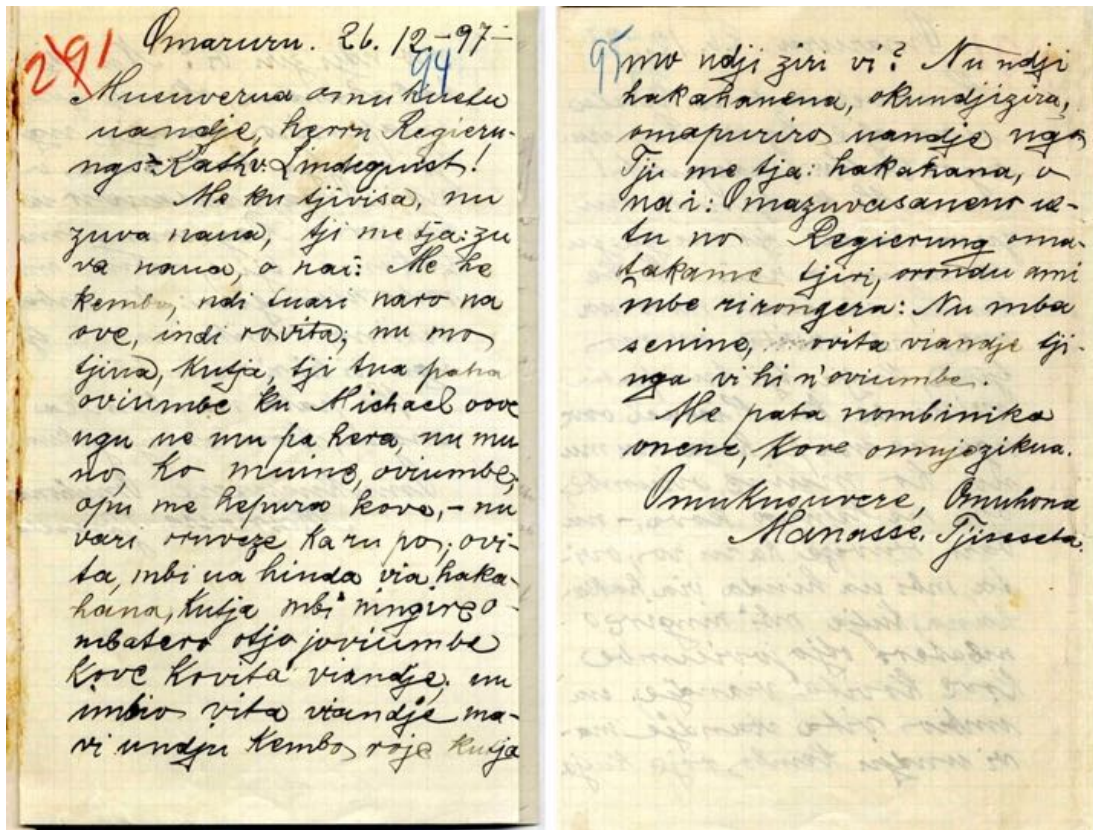 Omaruru. 26. 12.-97-
291
94
Musuverua omukuetu
uandje, herrn Regieru-
ngs-Rath v. Lindequist!
Me ku tjivisa, nu
zuva naua, tji me tja: zu
va naua, o nai: Me he
kembo, ndi tuari naro na
ove, indi rovita; nu mo
tjiua, kutja, tji tua paha
oviumbe ku Michael oove
ngu ne mu pa hera, nu mu
no, ko muine, oviumbe,
opu me hepura kove, - nu
vari oruveze karu po; ovi-
ta, mbi ua hinda via haka-
hana, kutja mbi ningire o-
mbatero otjo joviumbe
kove kovita viandje; nu
imbio vita viandje ma-
vi undju kembo roje kutja
95
mo ndji ziri vi? Nu ndji
hakahanena, okundjizira,
omapuriro uandje nga
Tju me tja: hakahana, o
nai: Omazuvasaneno ue-
tu no Regierung oma-
takame tjiri, orondu ami
mbe rirongera: Nu mba
senine, movita viandje tji-
nga vi hi n'oviumbe.
Me pata nombinika
onene, kove omujozikua.
Omukusuvere, Omuhona
Manasse. Tjiseseta.